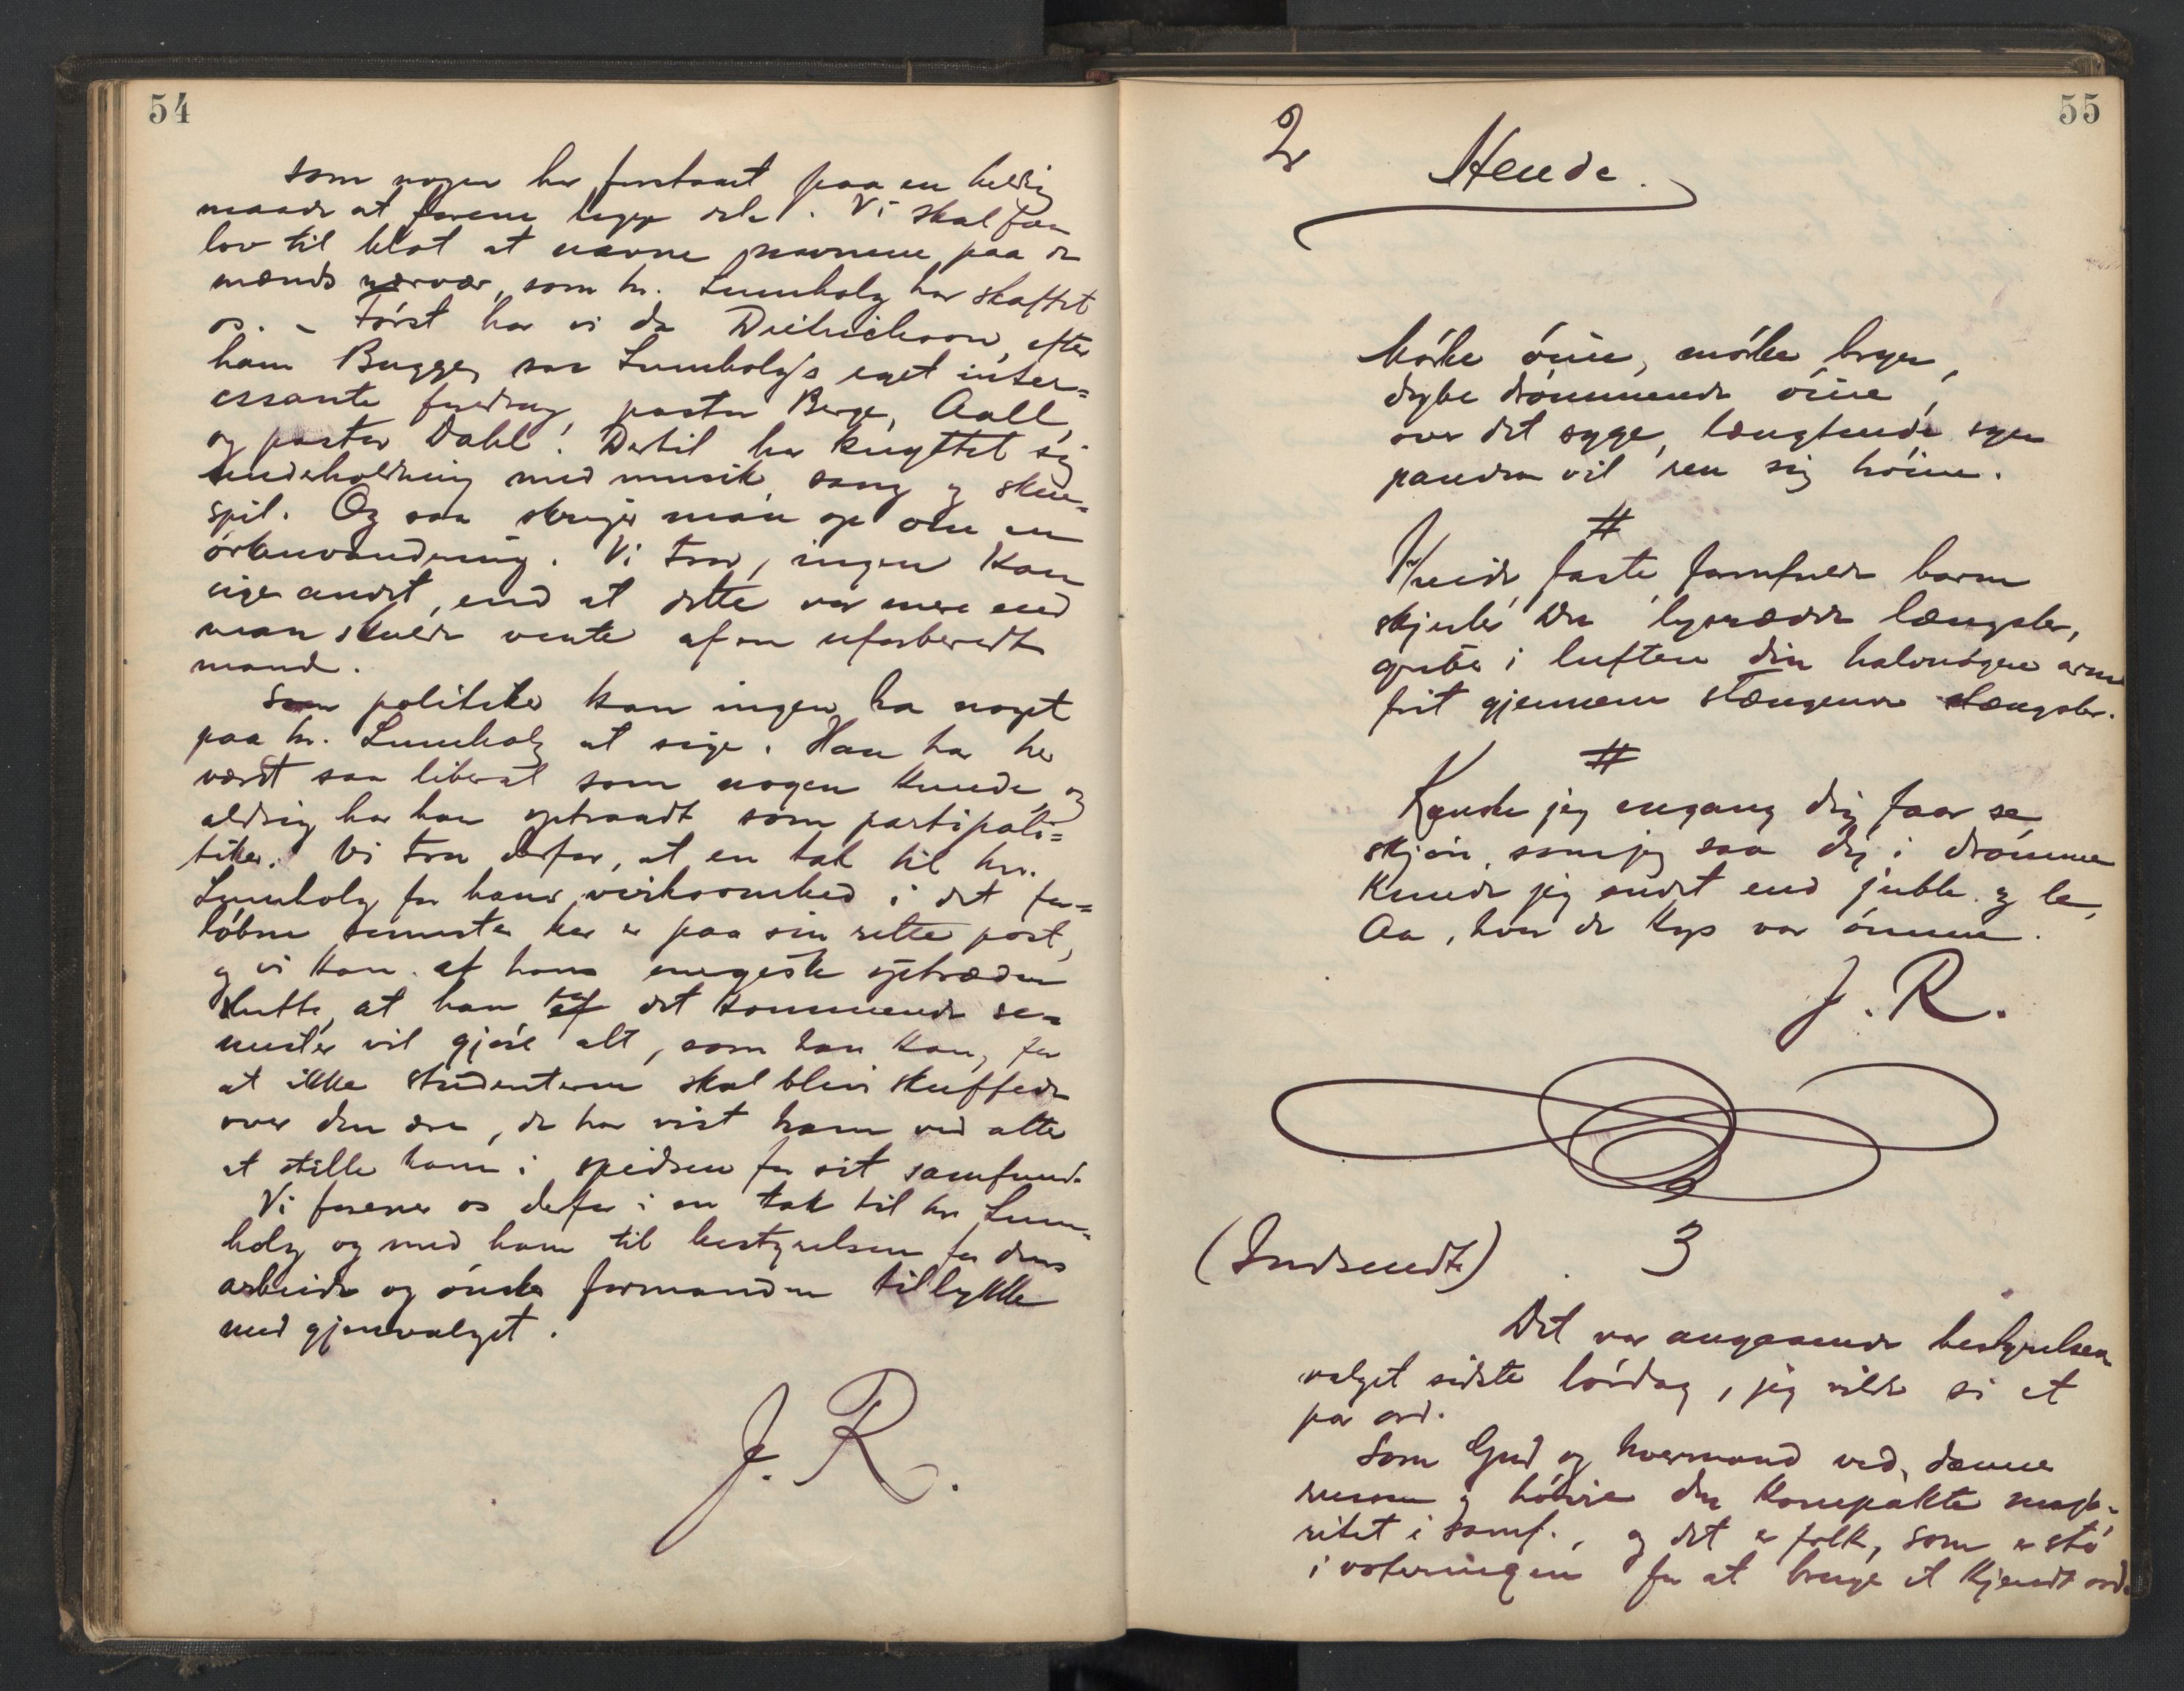 54
som nogen har forstaaet paa en heldig
maade at forene begge dele. Vi skal faa
lov til blot at nævne navnene paa de
mænds nærvær, som hr. Lumholz har skaffet
os. – Først har vi da Dietrichson, efter
ham Bugge, saa Lumholz's eget inter=
essante foredrag, pastor Berge, Aall,
og pastor Dahl! Dertil har knyttet sig
underholdning med musik, sang og skue=
spil. Og saa skriger man op om en
ørkenvandring. Vi tror, ingen kan
sige andet, end at dette var mere end
man skulde vente af en uforberedt
mand.
Som politiker kan ingen ha noget
paa hr. Lumholz at sige. Han har her
været saa liberal som nogen kunde, og
aldrig har han optraadt som partipoli=
tiker. Vi tror derfor, at en tak til hr.
Lumholz for hans virksomhed i det for=
løbne semester her er paa sin rette post,
og vi kan af hans energiske optræden
slutte, at han i det kommende se=
mester vil gjøre alt, som han kan, for
at ikke studenterne skal blive skuffede
over den ære, de har vist ham ved atter
at stille ham i spidsen for sit samfund.
Vi forener os derfor i en tak til hr Lum=
holz og med ham til bestyrelsen for dens
arbeide og ønsker formanden tillykke
med gjenvalget.
J. R.
55
2
Hende.
Mørke øine, mørke bryn,
dybe drømmende øine,
over det syge, længtende syn
panden vil ren sig høine.
#
Hvide, faste, formfulde barm
skjuler den lysrædde længsler,
griber i luften din halvnøgne arm
frit gjennem stængende stængsler.
#
Kanske jeg engang dig faar se
skjøn, som jeg saa dig i drømme
kunde jeg andet end juble og le,
Aa, hvor de kys var ømme.
J. R.
(Indsendt) 3
Det var angaaende bestyrelses
valget sidste lørdag, jeg vilde si et
par ord.
Som Gud og hvermand ved, danner
og høire den kompakte majo=
ritet i samf., og det er folk, som er stø
i voteringen for at bruge et kjendt ord.